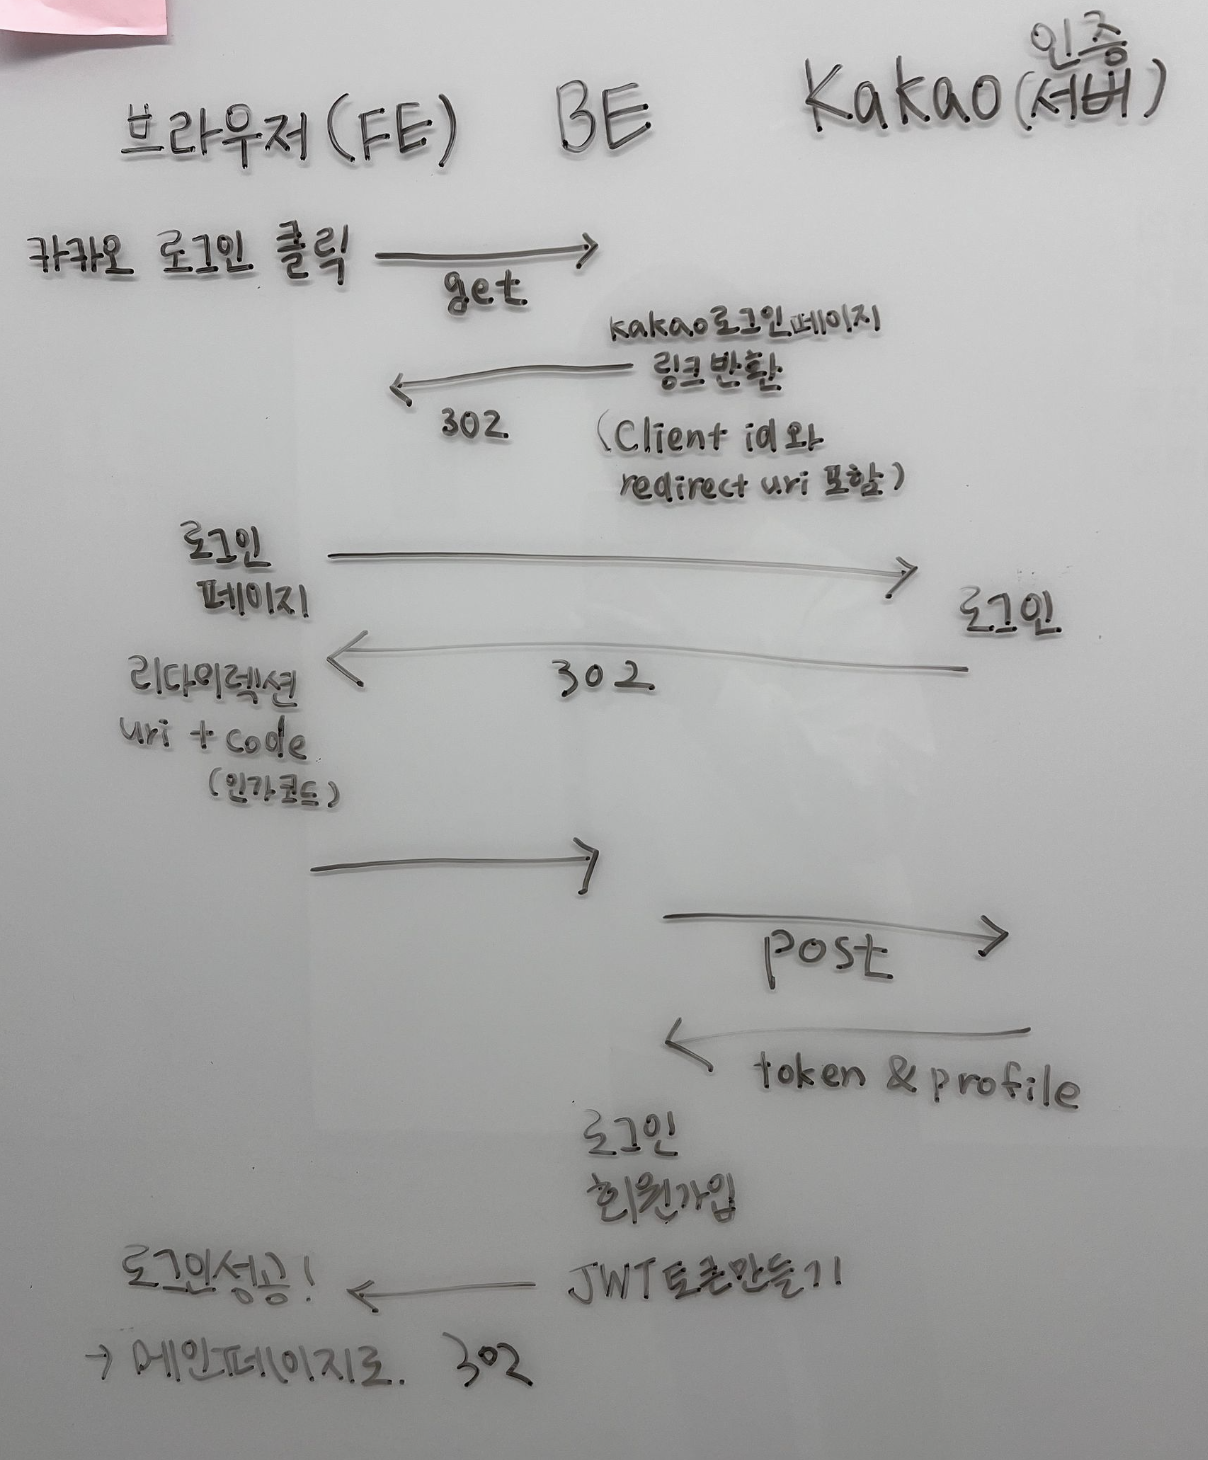 브라우저(FE) BE Kakao(인증서버)
카카오 로그인 클릭
get
kakao로그인페이지
링크반환
302
(Client id와
redirect uri 포함)
로그인
페이지
로그인
302
리다이렉션
uri + code
(인가코드)
post
token & profile
로그인
회원가입
로그인성공! JWT토큰만들기
→ 메인페이지로. 302